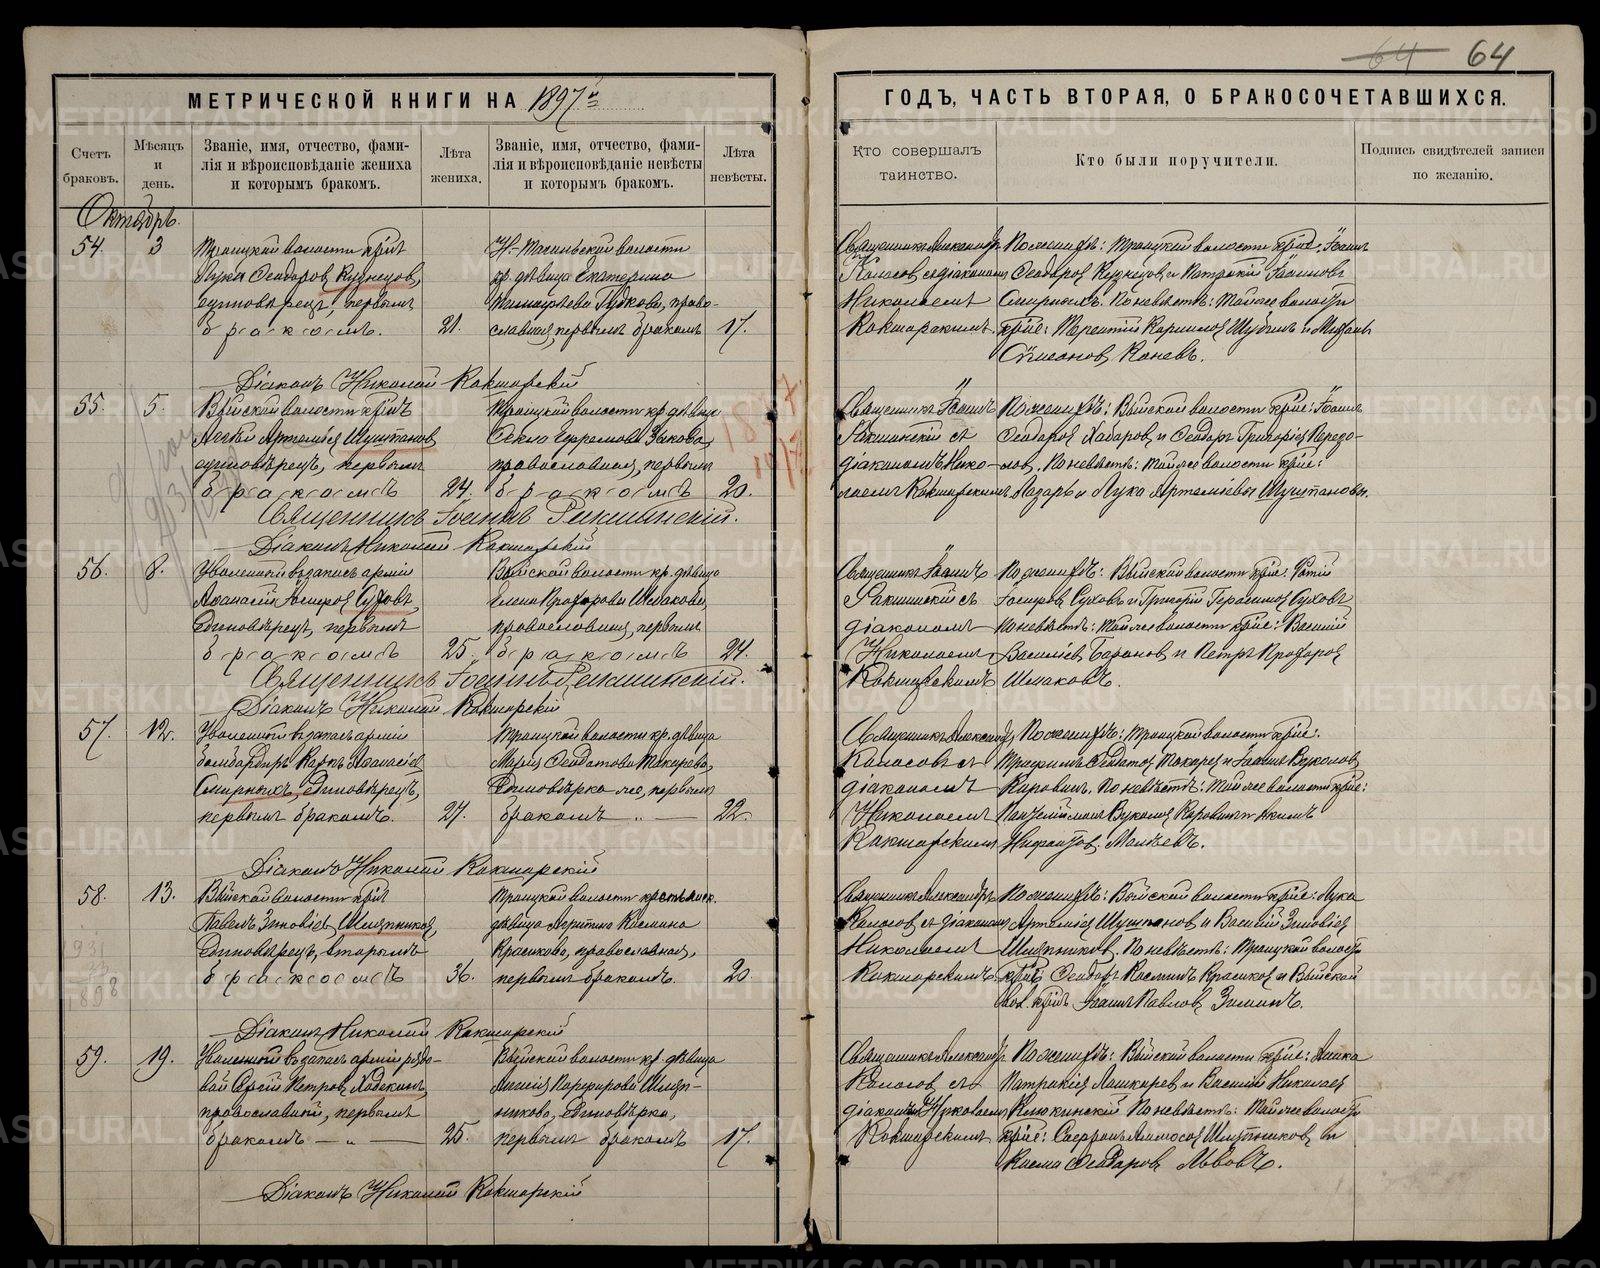 64 64
МЕТРИЧЕСКОЙ КНИГИ НА 1897й
ГОДЪ, ЧАСТЬ ВТОРАЯ, О БРАКОСОЧЕТАВШИХСЯ.
Счетъ браковъ.
Мѣсяцъ и день.
Званіе, имя, отчество, фами-
лія и вѣроисповѣданіе жениха
и которымъ бракомъ.
Лѣта жениха.
Званіе, имя, отчество, фами-
лія и вѣроисповѣданіе невѣсты
и которымъ бракомъ.
Лѣта невѣсты.
Кто совершалъ
таинство.
Кто были поручители.
Подпись свидѣтелей записи
по желанію.
Октябрь.
54. 3
Троицкой волости кр.
Лука Ѳеодоровъ Кузнецовъ,
единовѣрецъ, первымъ
бракомъ. 21.
Н.-Тагильской волости
кр. дѣвица Екатерина
Губкова, право-
славная, первымъ бракомъ 17.
Священникъ Александръ
Колосовъ съ діакономъ
Николаемъ
Кокшарскимъ.
По женихѣ: Троицкой волости кр.: Іоаннъ
Ѳеодоровъ Кузнецовъ и Патрикій Іоанновъ
Смирныхъ. По невѣстѣ: той же волости
кр.: Терентій Шубинъ и
Симеоновъ Каневъ.
Діаконъ Николай Кокшарскій
55. 5.
Выйской волости кр.
Артемьевъ Шушпановъ
единовѣрецъ, первымъ
бракомъ 24.
Троицкой волости кр. дѣвица
Ѳекла Ефремова Зыкова,
православная, первымъ
бракомъ 20.
Священникъ Іоаннъ
Ракшинскій съ
діакономъ Нико-
лаемъ Кокшарскимъ
По женихѣ: Выйской волости кр.: Іоаннъ
Ѳеодоровъ Хабаровъ и Ѳеодоръ Григорьевъ
По невѣстѣ: той же волости кр.:
Лазарь и Лука Артемьевы Шушпановы.
Священникъ Іоаннъ Ракшинскій.
Діаконъ Николай Кокшарскій
56. 8.
Уволенный въ запасъ арміи
Аѳанасій Іосифовъ Суховъ,
Единовѣрецъ, первымъ
бракомъ 25.
Выйской волости кр. дѣвица
Елена Прохорова Шмакова,
православная, первымъ
бракомъ 24.
Священникъ Іоаннъ
Ракшинскій съ
діакономъ
Николаемъ
Кокшарскимъ
По женихѣ: Выйской волости кр.: Фотій
Іосифовъ Суховъ и Григорій Герасимовъ Суховъ
По невѣстѣ: той же волости кр.: Василій
Васильевъ Барановъ и Петръ Прохоровъ
Шмаковъ.
Священникъ Іоаннъ Ракшинскій.
Діаконъ Николай Кокшарскій
57. 12.
Уволенный въ запасъ арміи
бомбардиръ Карпъ Аѳанасьевъ
Смирныхъ, единовѣрецъ,
первымъ бракомъ. 27.
Троицкой волости кр. дѣвица
Марія Ѳеодотова Токарева,
Единовѣрка же, первымъ
бракомъ 22.
Священникъ Александръ
Колосовъ съ
діакономъ
Николаемъ
Кокшарскимъ
По женихѣ: Троицкой волости кр.:
Трофимъ Ѳеодотовъ Токаревъ и Іоаннъ Вуколовъ
Каровинъ. По невѣстѣ: той же волости кр.:
Пантелеимонъ Вуколовъ Каровинъ и Акимъ
Нифонтовъ Мальцевъ.
Діаконъ Николай Кокшарскій
58. 13.
Выйской волости кр.
Павелъ Зиновьевъ Шляпниковъ,
Единовѣрецъ, вторымъ
бракомъ 36.
Троицкой волости крестьянск.
дѣвица Космина
Красикова, православная,
первымъ бракомъ. 20.
Священникъ Александръ
Колосовъ съ діакономъ
Николаемъ
Кокшарскимъ
По женихѣ: Выйской волости кр.: Лука
Артемьевъ Шушпановъ и Василій Зиновьевъ
Шляпниковъ. По невѣстѣ: Троицкой волости
кр. Ѳеодоръ Косминъ Красиковъ и Выйской
вол. кр. Іоаннъ Павловъ Зиминъ.
Діаконъ Николай Кокшарскій
59. 19.
Уволенный въ запасъ арміи рядо-
вой Сергій Петровъ Ходекинъ,
православный, первымъ
бракомъ 25.
Выйской волости кр. дѣвица
Порфирова Шляп-
никова, Единовѣрка,
первымъ бракомъ 17.
Священникъ Александръ
Колосовъ съ
діакономъ Николаемъ
Кокшарскимъ
По женихѣ: Выйской волости кр.:
Патрикіевъ Лошкаревъ и Василій Николаевъ
Клюкинскій По невѣстѣ: той же волости
кр.: Шляпниковъ и
Косма Ѳеодоровъ Львовъ.
Діаконъ Николай Кокшарскій
METRIKI.GASO-URAL.RU